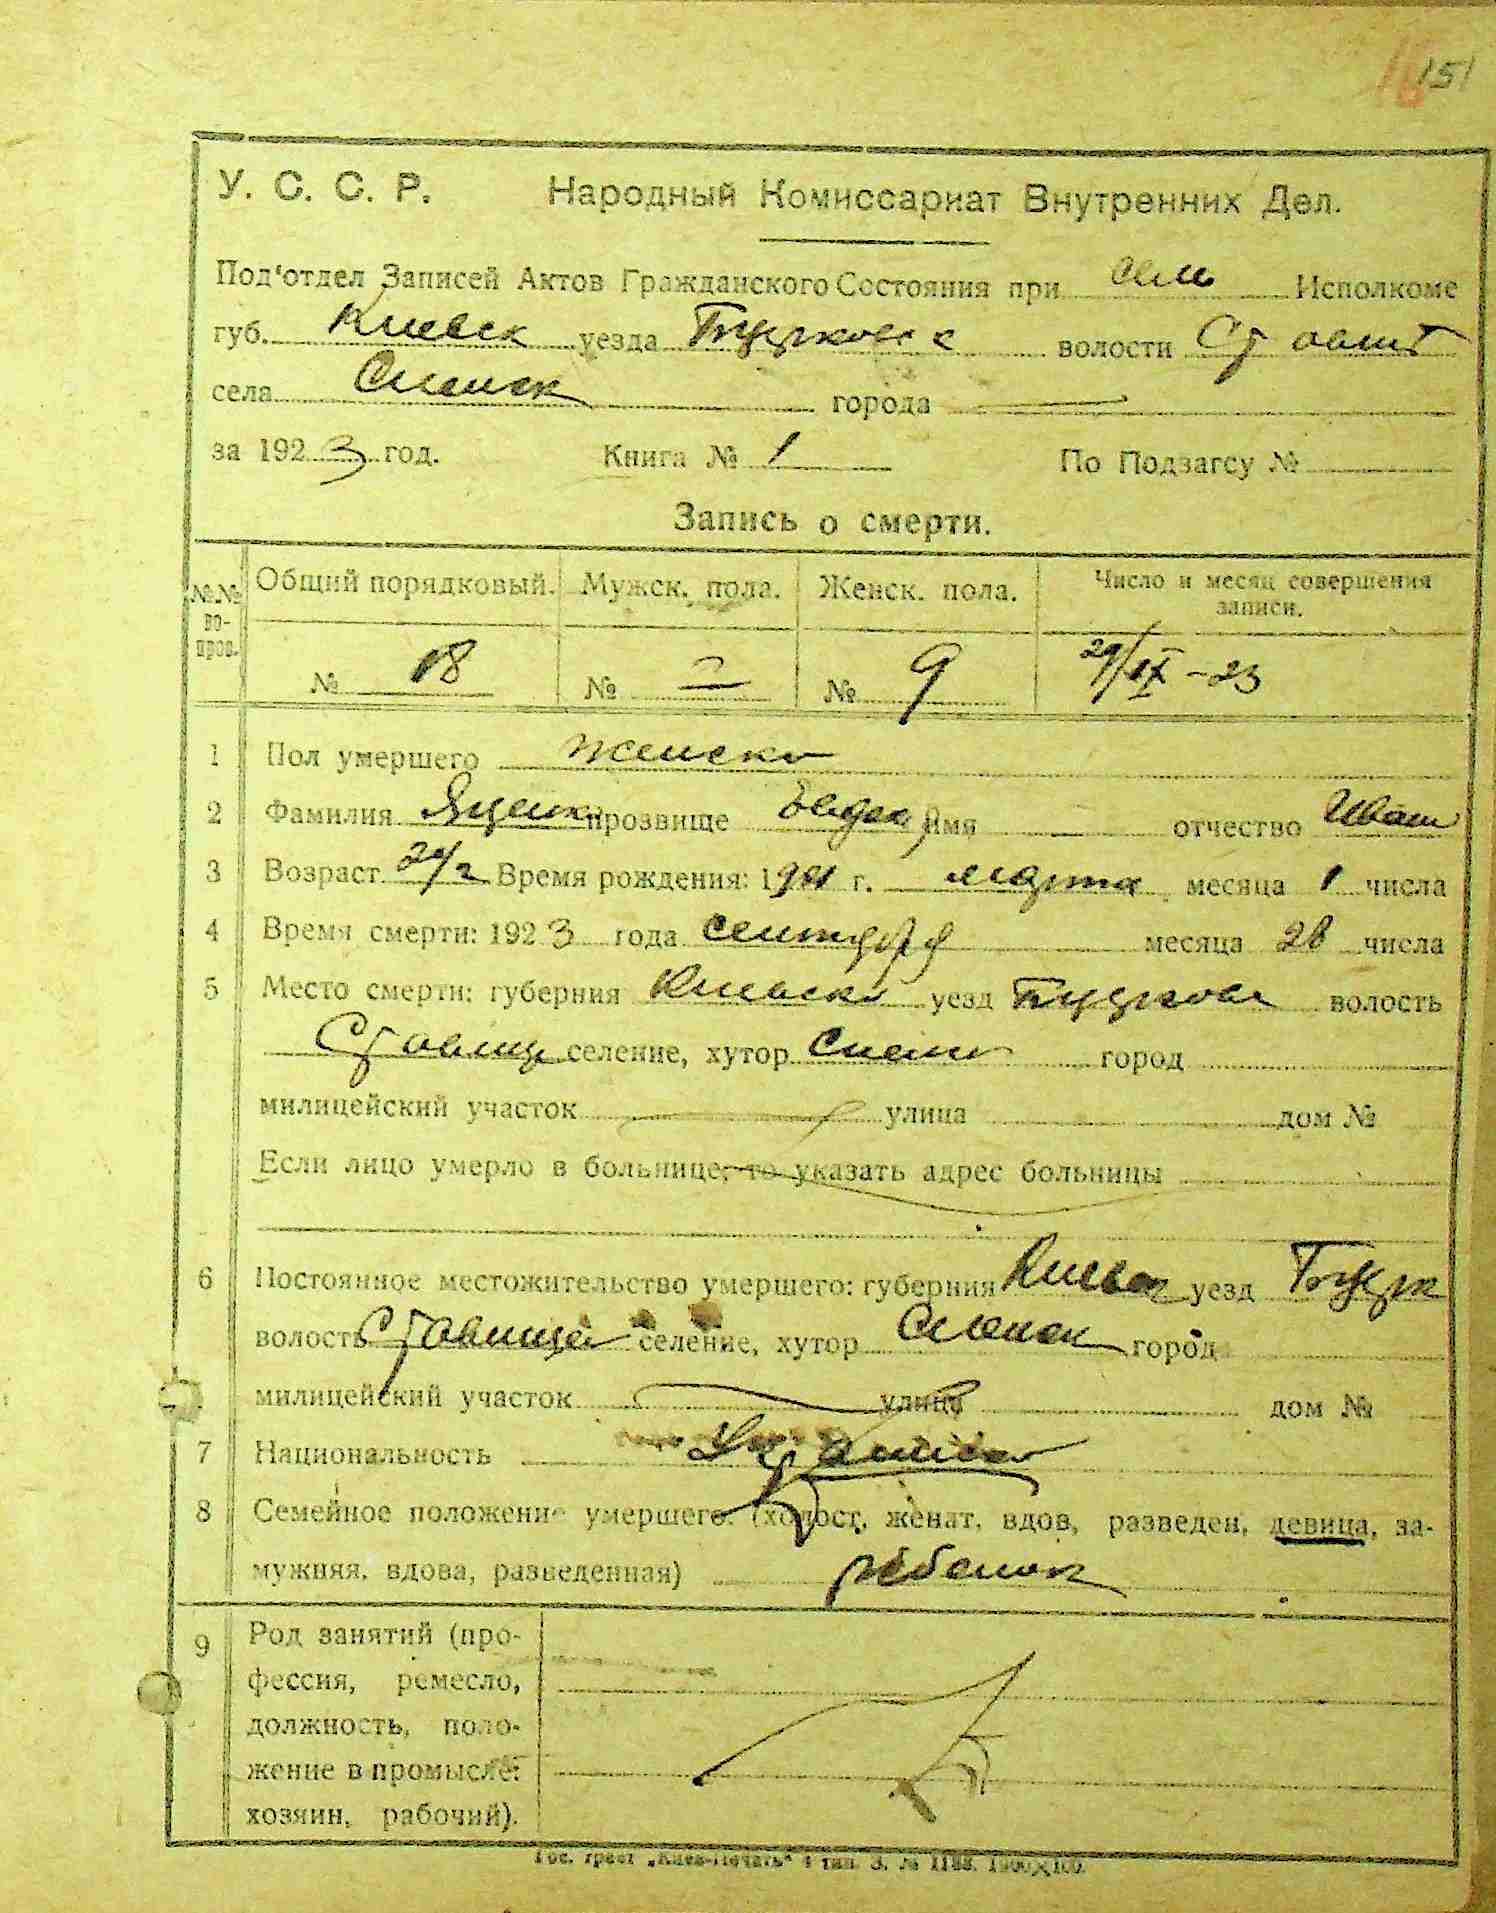 151
У. С. С. Р. Народный Комиссариат Внутренних Дел.
Под'отдел Записей Актов Гражданского Состояния при сель Исполкоме
губ. Киевск уезда волости Ставищ
села города
за 1923 год. Книга № 1 По Подзагсу №
Запись о смерти.
№№ во-прос. Общий порядковый. Мужск. пола. Женск. пола. Число и месяц совершения записи.
№ 18 № — № 9 29/IX - 23
1 Пол умершего женско
2 Фамилия Яценко прозвище имя — отчество Иван
3 Возраст Время рождения: 19 г. марта месяца 1 числа
4 Время смерти: 1923 года сентября месяца 28 числа
5 Место смерти: губерния Киевско уезд волость
Ставище селение, хутор город
милицейский участок улица дом №
Если лицо умерло в больнице, то указать адрес больницы
6 Постоянное местожительство умершего: губерния Киевск уезд
волость Ставище селение, хутор город
милицейский участок улица дом №
7 Национальность
8 Семейное положение умершего: (холост, женат, вдов, разведен, девица, за-
мужняя, вдова, разведенная) ребенок
9 Род занятий (про-
фессия, ремесло,
должность, поло-
жение в промысле:
хозяин, рабочий).
Гос. трест „Киев-Печать" 4 тип. З. №